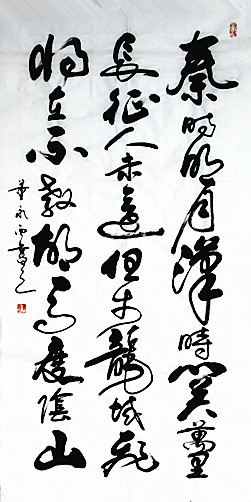 秦時明月漢時關萬里
長征人未還但使龍城飛
將在不教胡馬度陰山